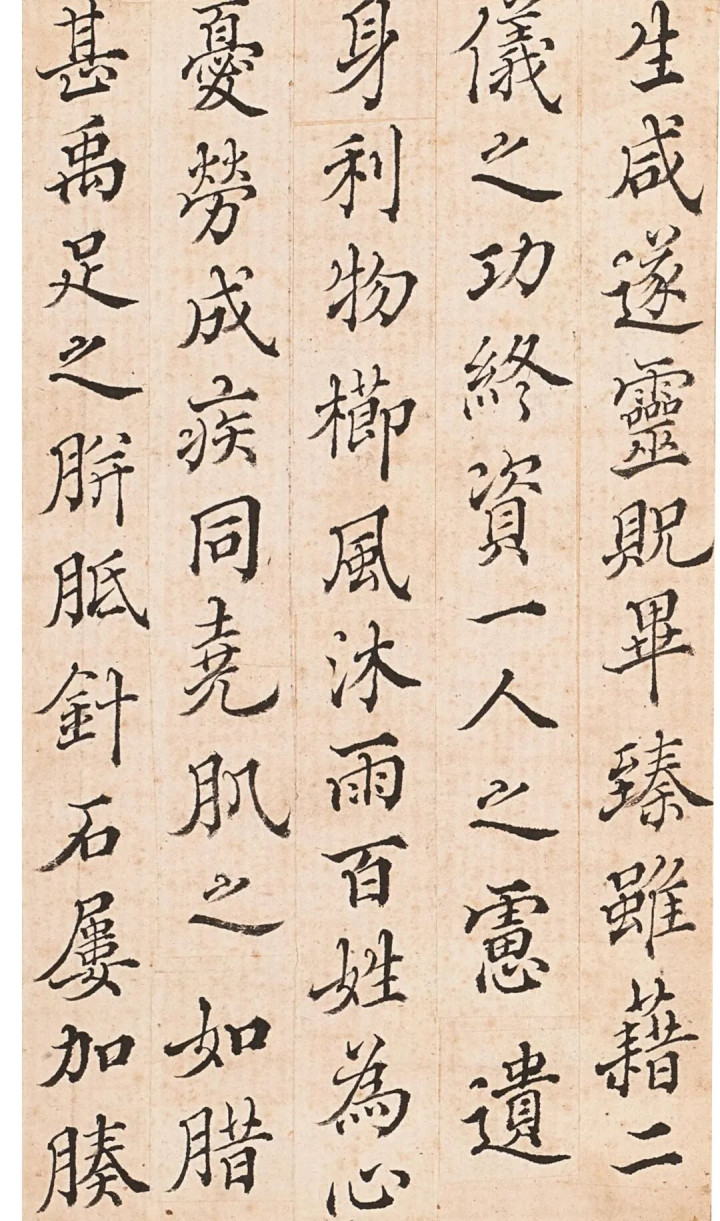 生咸遂靈貺畢臻雖藉二
儀之功終資一人之慮遺
身利物櫛風沐雨百姓為心
憂勞成疾同堯肌之如腊
甚禹足之胼胝針石屢加腠